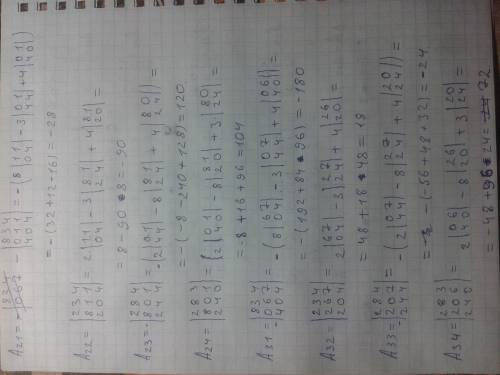 A21 = -|8 3 4; 0 1 1; 4 0 4| = -(8|1 1; 0 4| - 3|0 1; 4 4| + 4|0 1; 4 0|)
= -(32+12-16) = -28
A22 = |2 3 4; 8 1 1; 2 0 4| = 2|1 1; 0 4| - 3|8 1; 2 4| + 4|8 1; 2 0| =
= 8 - 90 - 8 = -90
A23 = -|2 8 4; 8 0 1; 2 4 4| = -(2|0 1; 4 4| - 8|8 1; 2 4| + 4|8 0; 2 4|) =
= -(-8 - 240 + 128) = 120
A24 = |2 8 3; 8 0 1; 2 4 0| = (2|0 1; 4 0| - 8|8 1; 2 0| + 3|8 0; 2 4| =
= -8 + 16 + 96 = 104
A31 = |8 3 4; 0 6 7; 4 0 4| = -(8|6 7; 0 4| - 3|0 7; 4 4| + 4|0 6; 4 0|) =
= -(192 + 84 - 96) = -180
A32 = |2 3 4; 2 6 7; 2 0 4| = 2|6 7; 0 4| - 3|2 7; 2 4| + 4|2 6; 2 0| =
= 48 + 18 - 48 = 18
A33 = -|2 8 4; 2 0 7; 2 4 4| = -(2|0 7; 4 4| - 8|2 7; 2 4| + 4|2 0; 2 4|) =
= -(-56 + 48 + 32) = -24
A34 = |2 8 3; 2 0 6; 2 4 0| = 2|0 6; 4 0| - 8|2 6; 2 0| + 3|2 0; 2 4| =
= -48 + 96 + 24 = 72